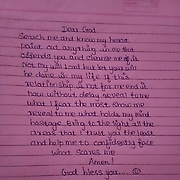 Dear God
Search me and know my heart
point out anything in me that
offends you and change me if is
Not my will Lord but let your will
be done in my life if this
relationship is not for me end it
now without delay reveal to me
what I fear the most show me
reveal to me what holds my mind
hostage. Bring to the light all the
areas that I trust you the least
and help me to confidently face
what scares me
Amen!
God bless you....